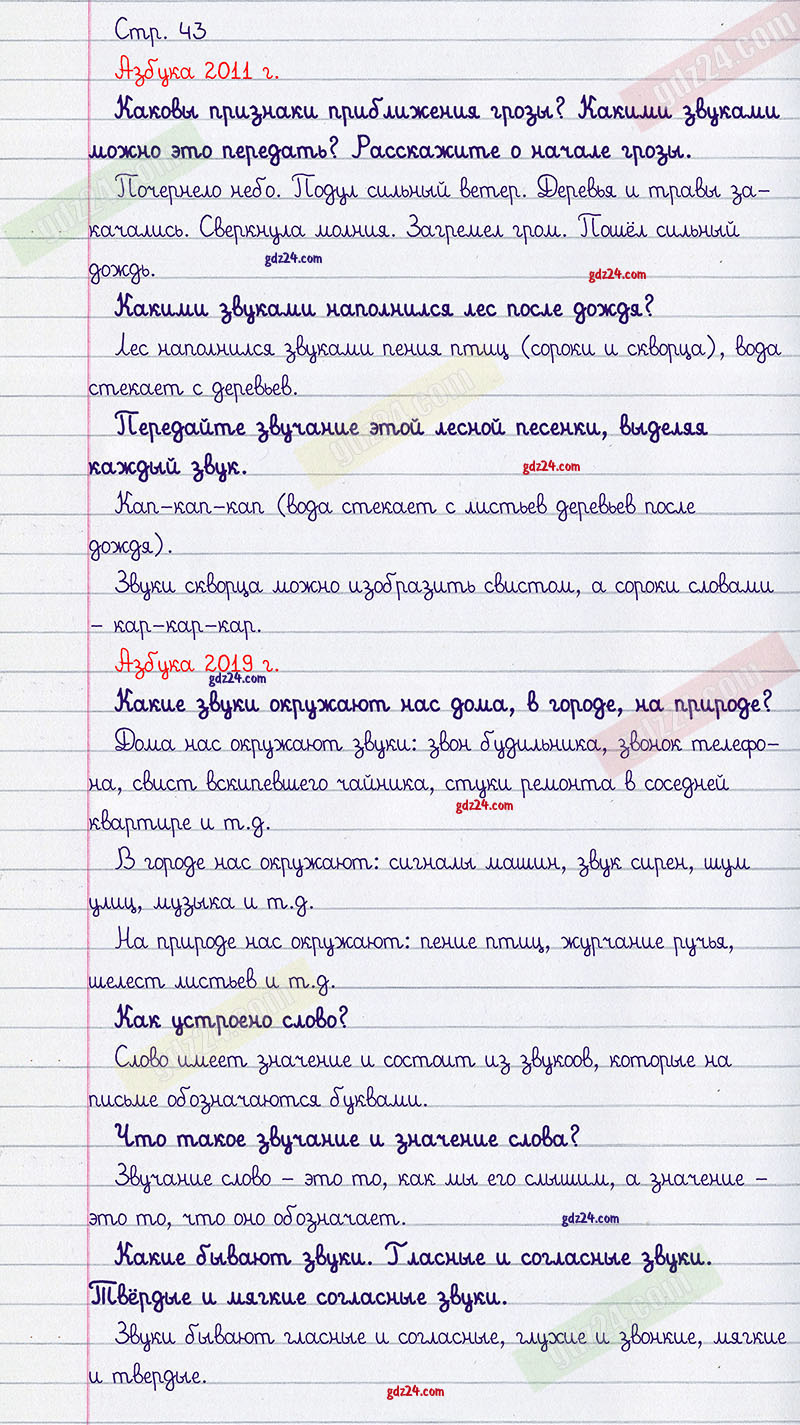 Стр. 43
Азбука 2011 г.
Каковы признаки приближения грозы? Какими звуками
можно это передать? Расскажите о начале грозы.
Почернело небо. Подул сильный ветер. Деревья и травы за-
качались. Сверкнула молния. Загремел гром. Пошёл сильный
gdz24.com
дождь.
gdz24.com
Какими звуками наполнился лес после дождя?
Лес наполнился звуками пения птиц (сороки и скворца), вода
стекает с деревьев.
Передайте звучание этой лесной песенки, выделяя
каждый звук.
gdz24.com
Кап-кап-кап (вода стекает с листьев деревьев после
дождя).
Звуки скворца можно изобразить свистом, а сороки словами
- кар-кар-кар.
Азбука 2019 г.
gdz24.com
Какие звуки окружают нас дома, в городе, на природе?
Дома нас окружают звуки: звон будильника, звонок телефо-
на, свист вскипевшего чайника, стуки ремонта в соседней
gdz24.com
квартире и т.д.
В городе нас окружают: сигналы машин, звук сирен, шум
улиц, музыка и т.д.
На природе нас окружают: пение птиц, журчание ручья,
шелест листьев и т.д.
Как устроено слово?
Слово имеет значение и состоит из звукоов, которые на
письме обозначаются буквами.
Что такое звучание и значение слова?
Звучание слово – это то, как мы его слышим, а значение –
это то, что оно обозначает.
gdz24.com
Какие бывают звуки. Гласные и согласные звуки.
Твёрдые и мягкие согласные звуки.
Звуки бывают гласные и согласные, глухие и звонкие, мягкие
и твердые.
gdz24.com